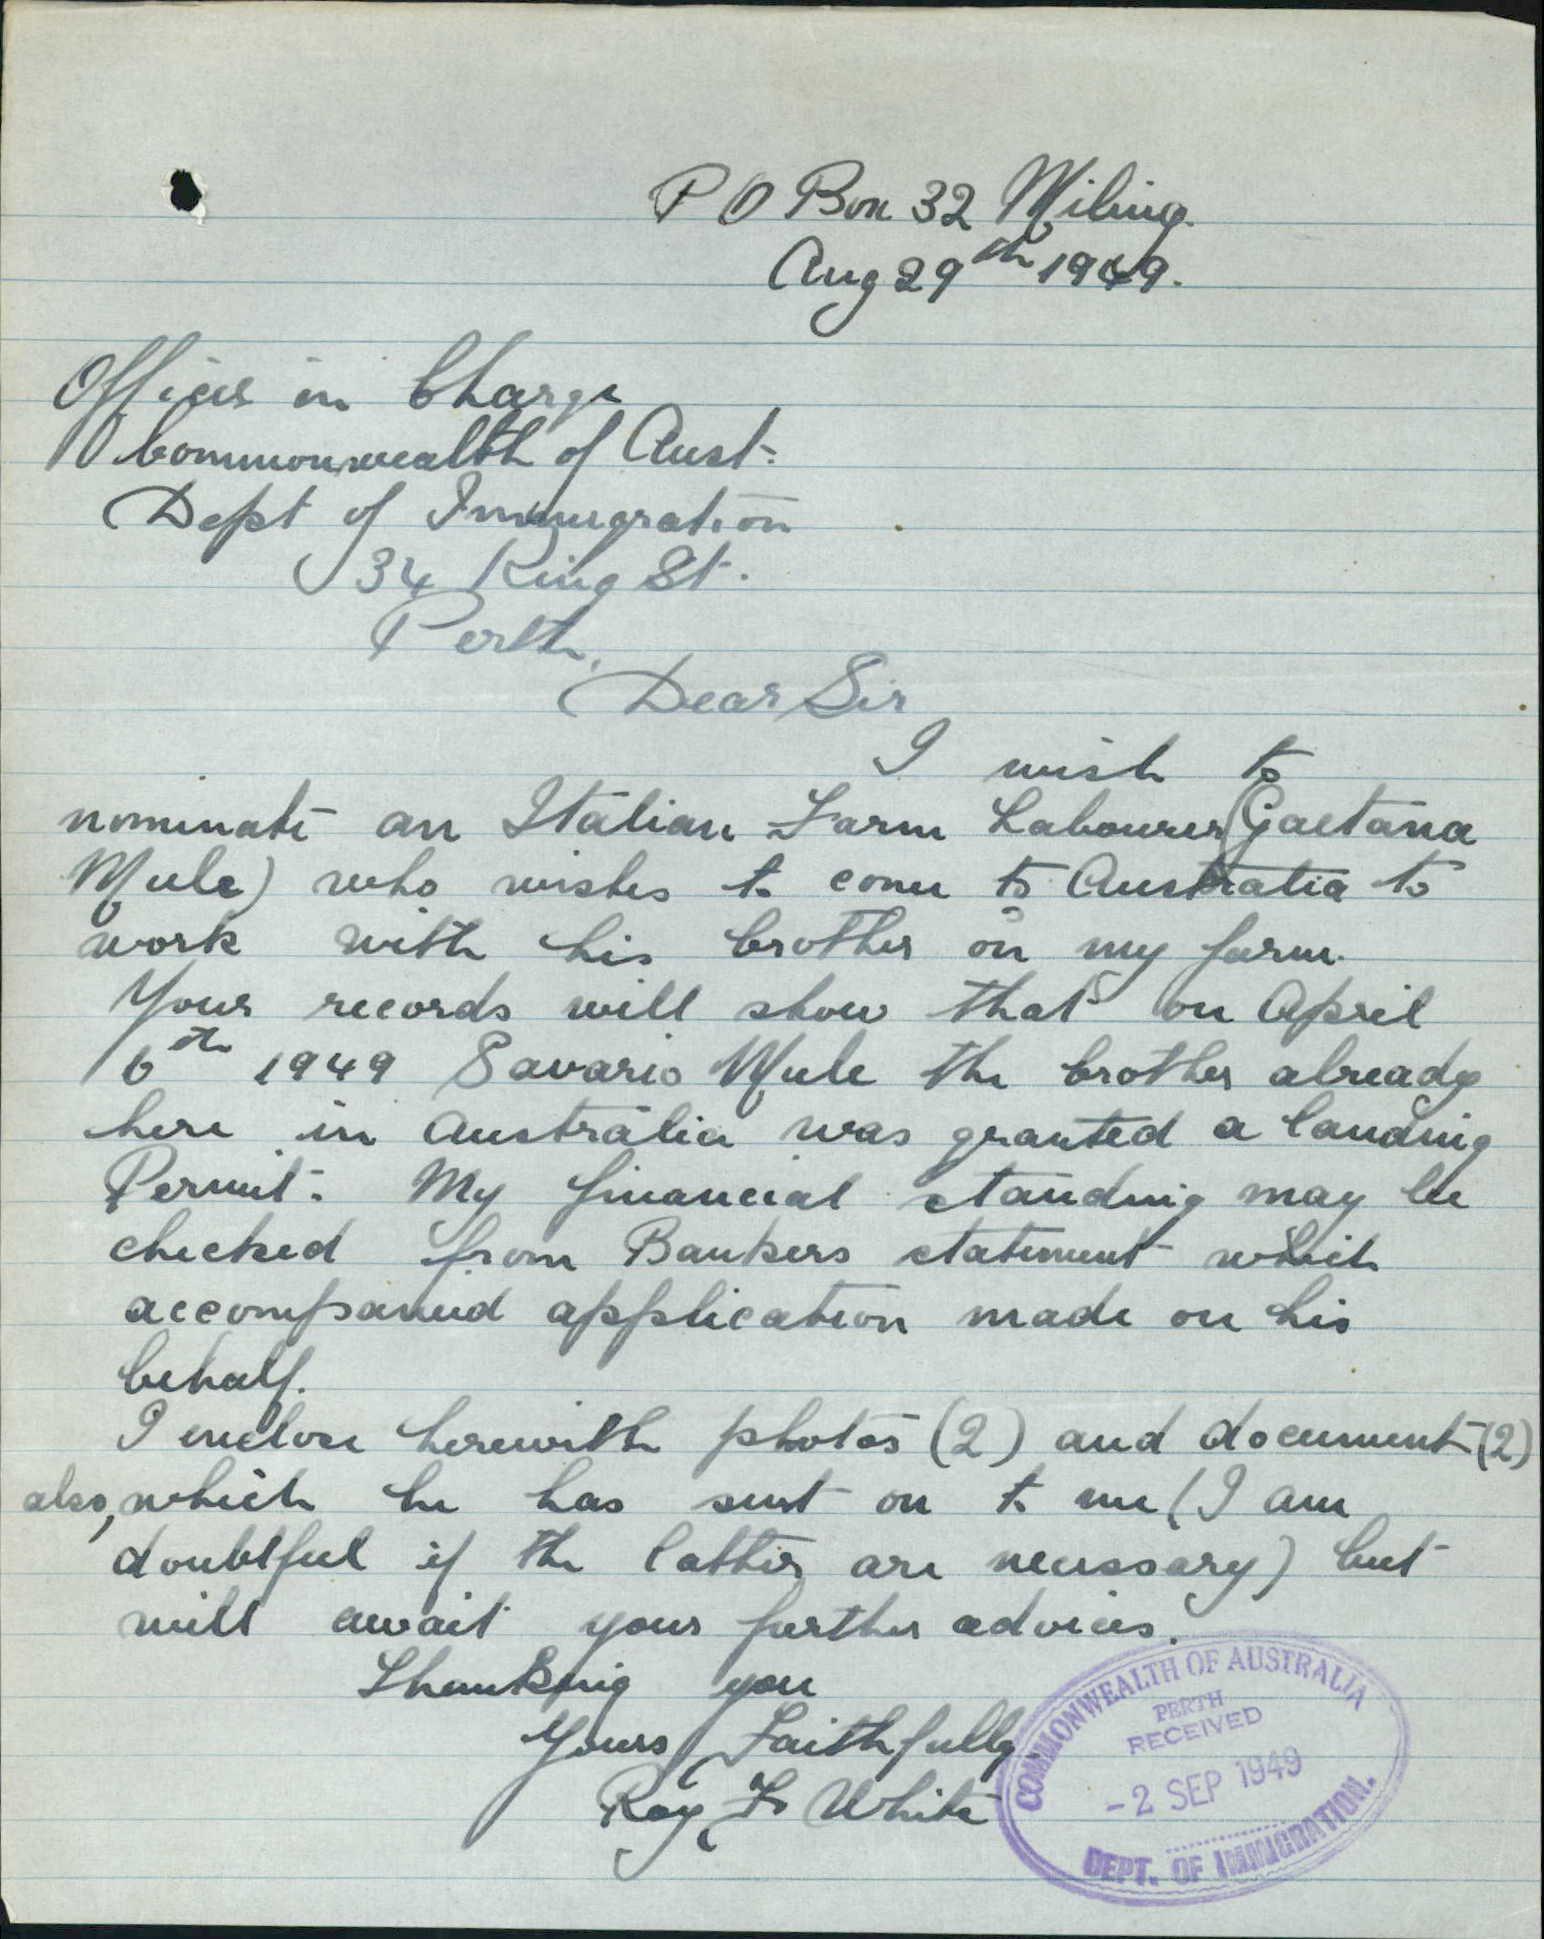 P O Box 32 Miling.
Aug 29th 1949.
Officer in Charge
Commonwealth of Aust.
Dept of Immigration
34 King St.
Perth.
Dear Sir
I wish to
nominate an Italian Farm Labourer (Gaetana
Mule) who wishes to come to Australia to
work with his brother on my farm.
Your records will show that on April
6th 1949 Savario Mule the brother already
here in Australia was granted a landing
Permit. My financial standing may be
checked from Bankers statement which
accompanied application made on his
behalf.
I enclose herewith photos (2) and document (2)
also, which he has sent on to me (I am
doubtful if the latter are necessary) but
will await your further advices.
Thanking you
Yours Faithfully
Roy F White
COMMONWEALTH OF AUSTRALIA
PERTH
RECEIVED
-2 SEP 1949
DEPT. OF IMMIGRATION.